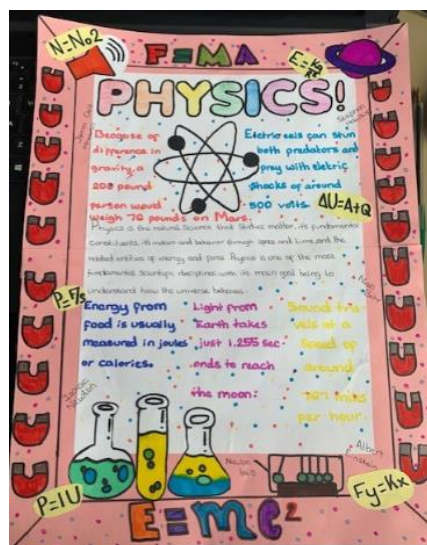 N=No2
F=MA
PHYSICS!
Becaose of
difference in
gravity, a
209 pound
person would
weigh 76 pounds on Mars.
Elctric eels can stun
both predators and
prey with elektric
shocks of around
500 volts.
ΔU=A+Q
Physics is the natural Science that Studies matter, its fundamental
constituents, its motion and behavior through space and time, and the
related entities of energy and force. Physics is one of the most
fundamental Scientific disciplines with its main goal being to
understand how the universe behaves.
P=7s
Energy from
food is usually
measured in joules
or calories.
Light from
Earth takes
just 1.255 sec-
onds to reach
the moon.
Sound tra-
vels at a
Speed of
around
767 miles
per hour.
Isaac
Newton
Albert
Einstein
P=IU
Fy=Kx
E=mc²